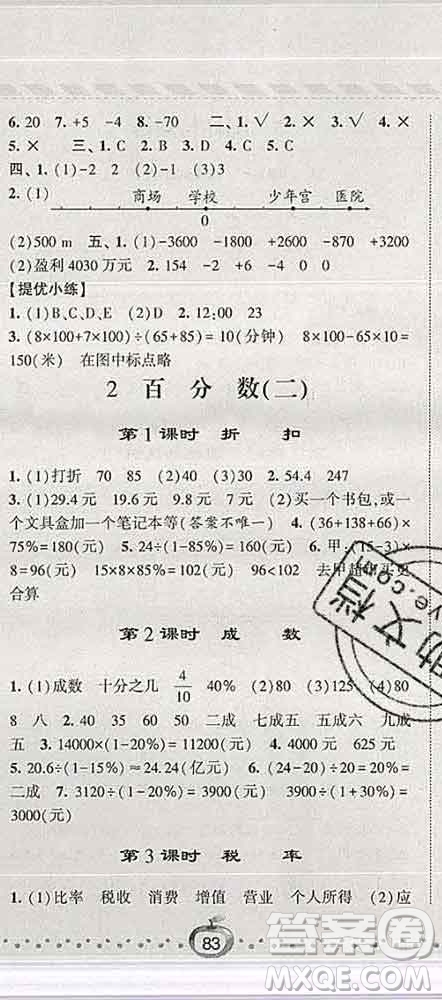 6. 20 7. +5 -4 8. -70 二、1. √ 2. × 3. √ 4. ×
5. × 三、1. C 2. B 3. A 4. C 5. C
四、1. (1)-2 2 (2)-1 (3)3
2. (1) 商场 学校 少年宫 医院
0
(2)500 m 五、1. (1)-3600 -1800 +2600 -870 +3200
(2)盈利 4030 万元 2. 154 -2 -6 0 +2 +6
[提优小练]
1. (1)B、C、D、E (2)D 2. 12:00 23
3. (8×100+7×100)÷(65+85)=10(分钟) 8×100-65×10=
150(米) 在图中标点略
2 百分数(二)
第1课时 折 扣
1. (1)打折 70 85 (2)40 (3)20 2. 54.4 247
3. (1)29.4 元 19.6 元 9.8 元 (2)买一个书包,或一
个文具盒加一个笔记本等(答案不唯一) 4. (36+138+66)×
75%=180(元) 5. 24÷(1-85%)=160(元) 6. 甲:(15-3)×
8=96(元) 15×8×85%=102(元) 96<102 去甲超市买更
合算
第2课时 成 数
1. (1)成数 十分之几 4/10 40% (2)80 (3)125 (4)80
8 八 2. 40 35 60 50 二成 七成五 六成 九成
五 3. 14000×(1-20%)=11200(元) 4. 4000 元 625 元
5. 20.6÷(1-15%)≈24.24(亿元) 6. (24-20)÷20=20%=
二成 7. 3120÷(1-20%)=3900(元) 3900÷(1+30%)=
3000(元)
第3课时 税 率
1. (1)比率 税收 消费 增值 营业 个人所得 (2)应
83
答案圈
MXQE.COM